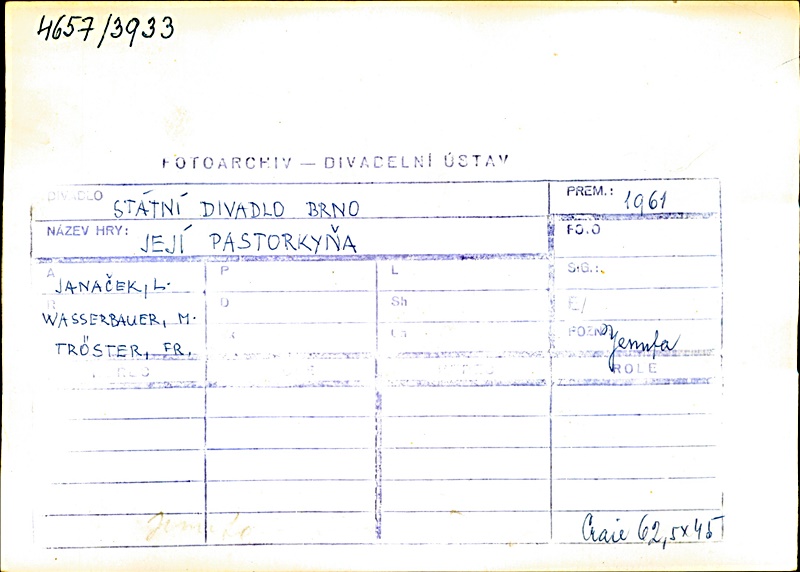 4657/3933
FOTOARCHIV — DIVADELNÍ ÚSTAV
DIVADLO STÁTNÍ DIVADLO BRNO
PREM.: 1961
NÁZEV HRY: JEJÍ PASTORKYŇA
FOTO
A P L SIG.:
JANAČEK, L.
R D Sh E/
WASSERBAUER, M.
POZN. Jenufa
TRÖSTER, FR.
ROLE
Jenufa
Craie 62,5x45